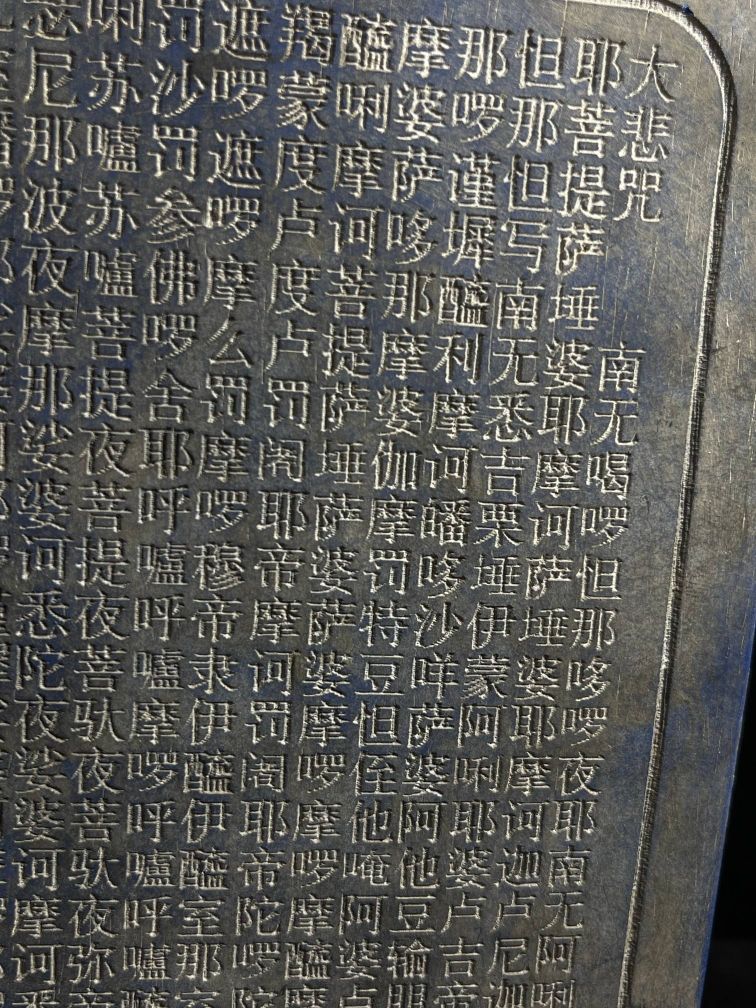 大悲咒 南无喝啰怛那哆啰夜耶南无阿唎
耶菩提萨埵婆耶摩诃萨埵婆耶摩诃迦卢尼迦
怛那怛写南无悉吉栗埵伊蒙阿唎耶婆卢吉帝
那啰谨墀醯利摩诃皤哆沙咩萨婆阿他豆输朋
摩婆萨哆那摩婆伽摩罚特豆怛侄他唵阿婆卢
醯唎摩诃菩提萨埵萨婆萨婆摩啰摩啰摩醯摩
羯蒙度卢度卢罚阇耶帝摩诃罚阇耶帝陀啰陀
遮啰遮啰摩么罚摩啰穆帝隶伊醯伊醯室那室
罚沙罚参佛啰舍耶呼嚧呼嚧摩啰呼嚧呼嚧醯
唎苏嚧苏嚧菩提夜菩提夜菩驮夜菩驮夜弥帝
尼那波夜摩那娑婆诃悉陀夜娑婆诃摩诃悉